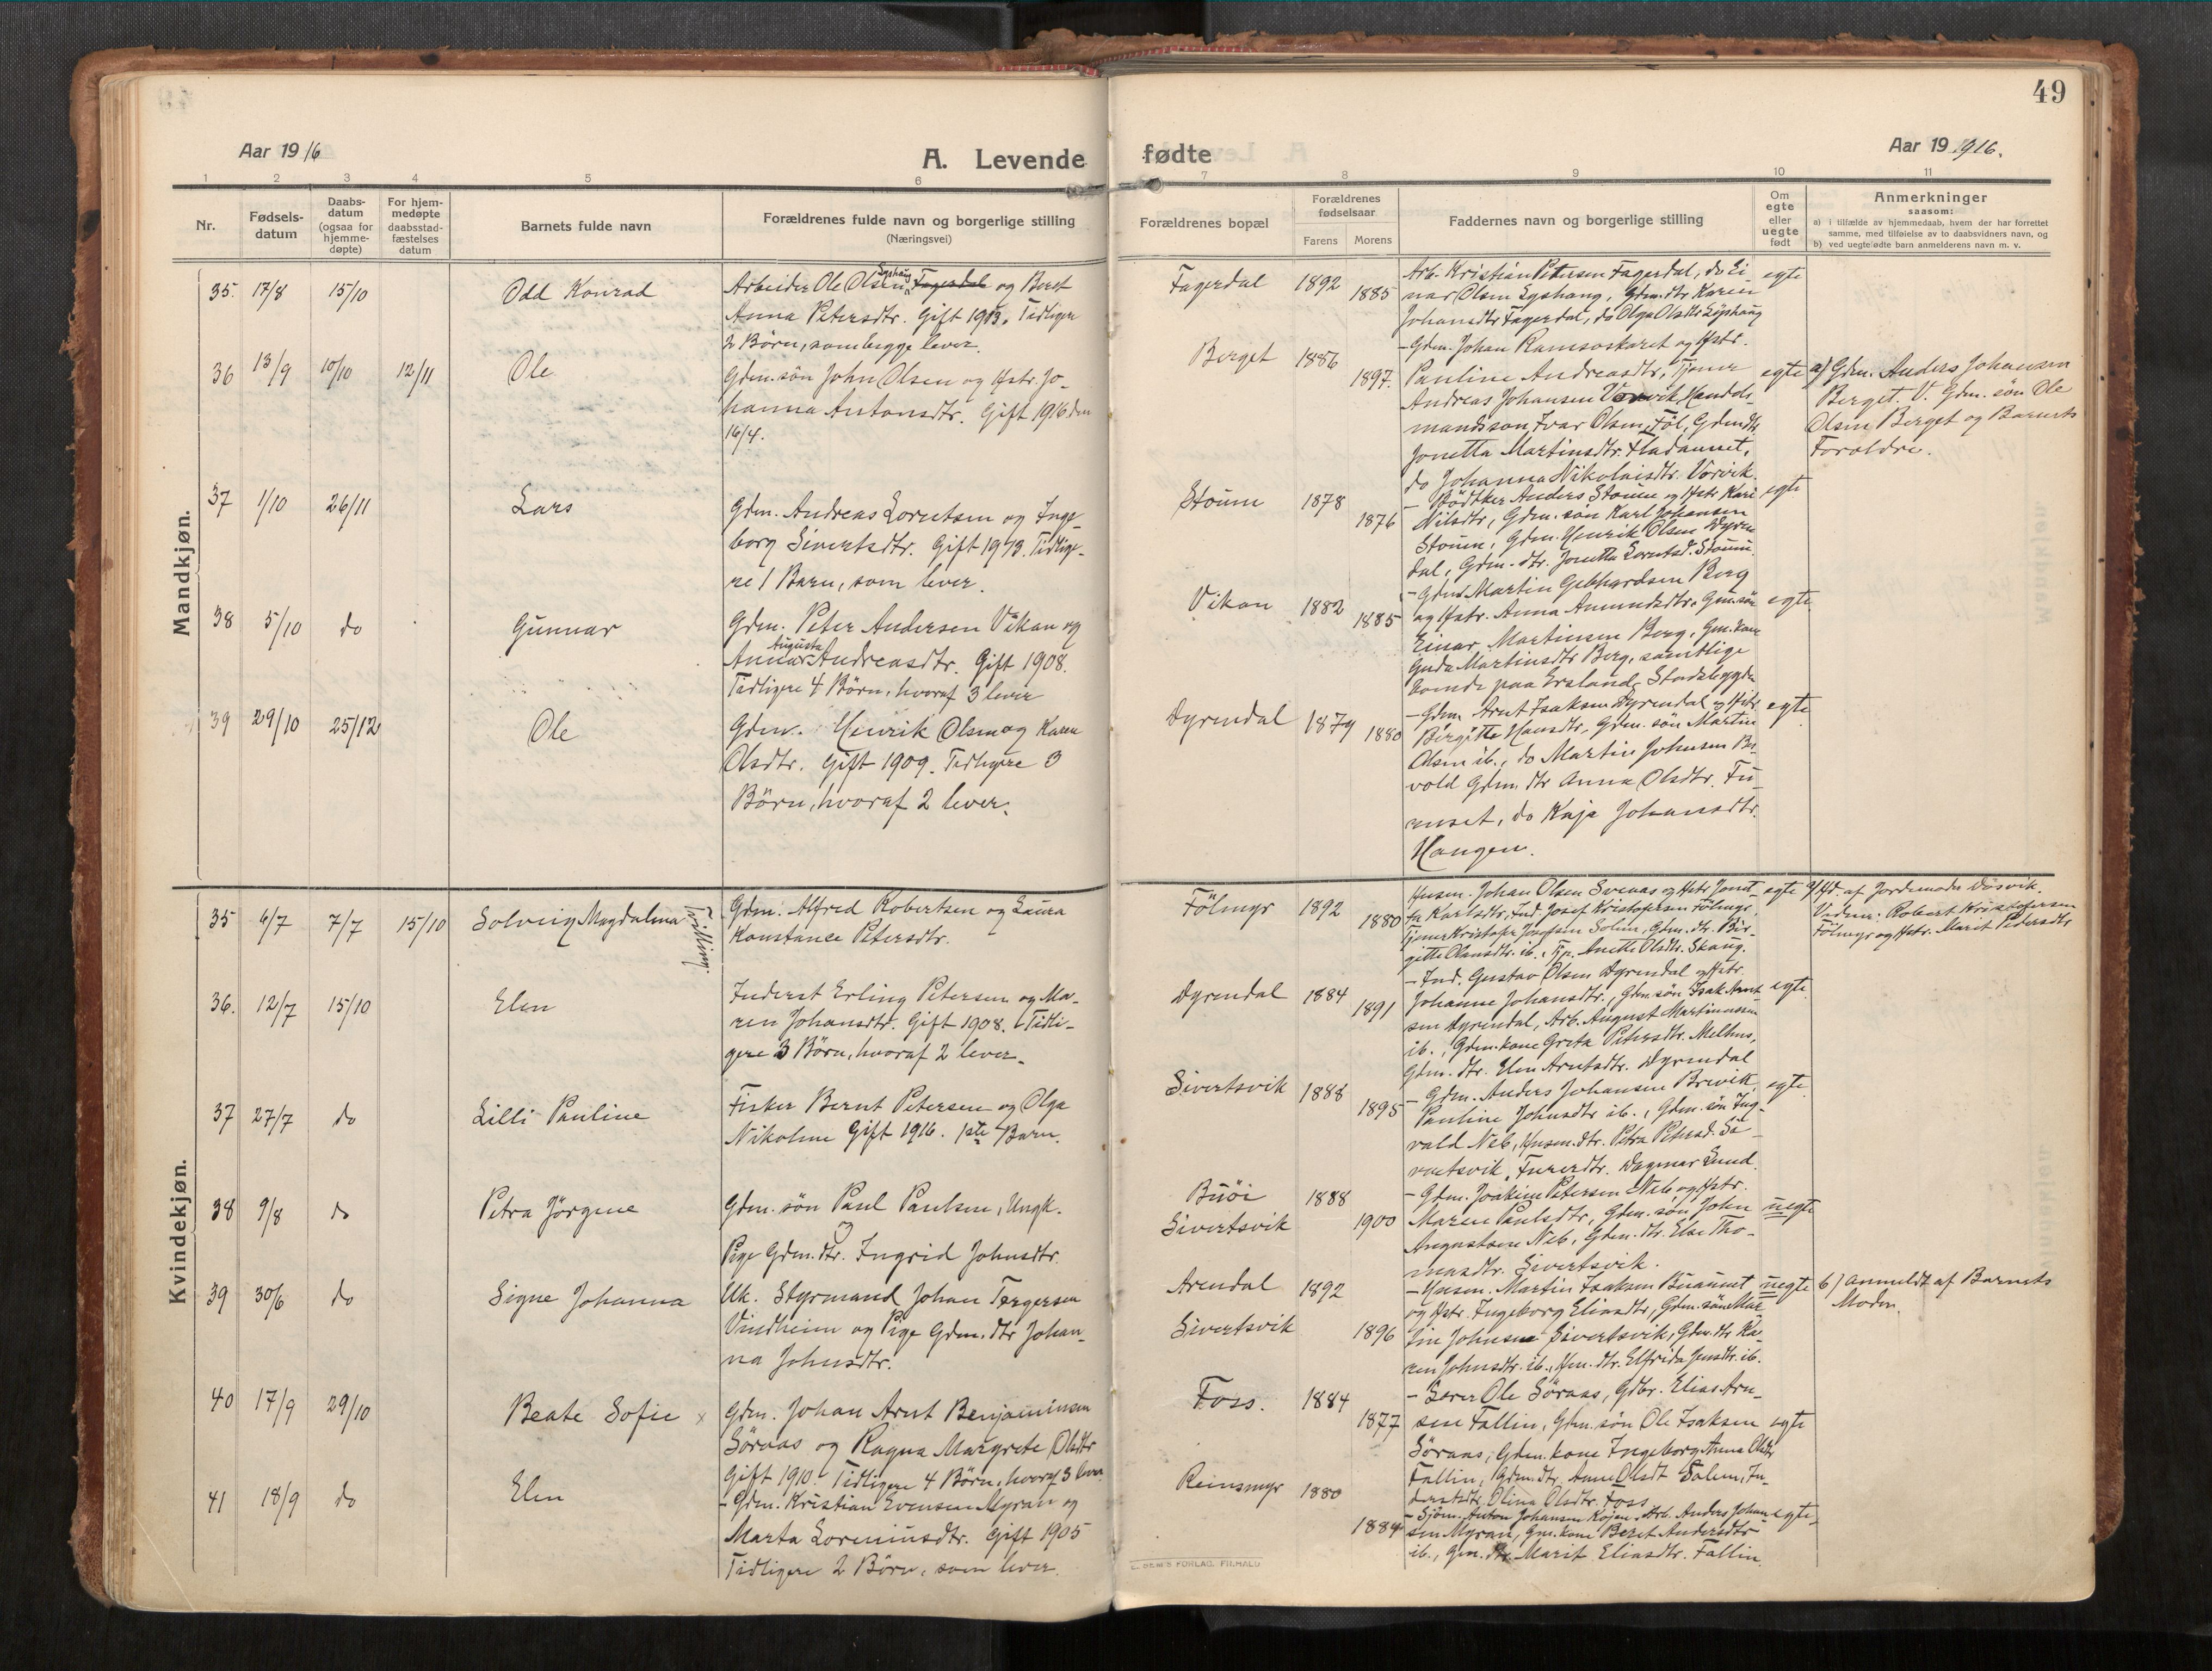 49
Aar 1916
A. Levende
fødte
Aar 19 1916.
1 2 3 4 5 6 7 8 9 10 11
Nr.
Fødsels-
datum
Daabs-
datum
(ogsaa for
hjemme-
døpte)
For hjem-
medøpte
daabsstad-
fæstelses
datum
Barnets fulde navn
Forældrenes fulde navn og borgerlige stilling
(Næringsvei)
Forældrenes bopæl
Forældrenes
fødselsaar
Farens
Morens
Faddernes navn og borgerlige stilling
Om
egte
eller
uegte
født
Anmerkninger
saasom:
a) i tilfælde av hjemmedaab, hvem der har forrettet
samme, med tilføielse av to daabsvidners navn, og
b) ved uegte fødte barn anmelderens navn m. v.
Mandkjøn.
35. 17/8 15/10 Odd Konrad
Arbeider Ole Olsen Fagerdal og Beret
Anna Petersdtr. Gift 1913. Tidligere
2 Børn, som begge lever.
Fagerdal 1892 1885
Arb. Kristian Petersen Fagerdal, do Ei
nar Olsen Lyshaug, Gdm. dtr Karen
Johansdtr Fagerdal, do Olga Olsdtr Lyshaug
egte
36 13/9 10/10 12/11 Ole
Gdm. søn John Olsen og Hstr. Jo-
hanna Antonsdtr. Gift 1916 den
16/4.
Berget 1886 1897.
- Gdm. Johan Ramsoskaret og Hstr.
Pauline Andreasdtr, Tjener
Andreas Johansen Vorvik, Handels-
mandsøn, Ivar Olsen, Föl, Gdmdtr.
Jonetta Martinsdtr. Fladaunet,
do Johanna Nikolaisdtr. Vorvik.
egte
a) Gdm. Anders Johansen
Berget. V. Gdm. søn Ole
Olsen Berget og Barnets
Forældre.
37 1/10 26/11 Lars
Gdm. Andreas Lorntsen og Inge-
borg Sivertsdtr. Gift 1913. Tidlige-
re 1 Barn, som lever.
Stoum 1878 1876
- Bödtker Anders Stoum og Hstr Kari
Nilsdtr, Gdm. søn Karl Johansen
Stoum, Gdm. Henrik Olsen Dyren
dal, Gdm. dtr. Jonetta Lorntsd. Stoum.
egte
38 5/10 do Gunnar
Gdm. Peter Andersen Vikan og
Anna Augusta Andreasdtr. Gift 1908.
Tidligere 4 Børn, hvoraf 3 lever
Vikan 1882 1885
- Gdm Martin Gebhardsen Berg
og Hstr. Anna Amundsdtr. Gm. søn
Einar Martinsen Berg, Gm. kone
Guda Martinsdtr Berg, samtlige
boende paa Ersland, Stadsbygden
egte
39 29/10 25/12 Ole
Gdm. Henrik Olsen og Karen
Olsdtr. Gift 1909. Tidligere 3
Børn, hvoraf 2 lever.
Dyrendal 1879 1880
- Gdm. Arnt Isaksen Dyrendal og Hstr.
Birgitte Hansdtr, Gdm. søn Martin
Olsen ib., do Martin Johnsen Be-
vold Gdm. dtr Anna Olsdtr. Fu-
ruset, do Kaja Johansdtr.
Haugen.
egte
Kvindekjøn.
35 6/7 7/7 15/10 Solveig Magdalena Tvilling.
Gdm. Alfred Robertsen og Laura
Konstance Petersdtr.
Fölmyr 1892 1880
Husm. Johan Olsen Svenaas og Hstr Jonet-
ta Karlsdtr, Ind. Josef Kristofersen Fölmyr,
Tjener Kristofer Josefsen Solem, Gdm. dtr. Bir-
gitte Olausdtr. ib., Tjp. Anette Olsdtr. Skaug.
egte
a) Hd. af Jordemoder Døsvik.
Vidner: Robert Kristofersen
Fölmyr og Hstr. Marit Pedersdtr
36. 12/7 15/10 Elen
Inderst Erling Petersen og Ma-
ren Johansdtr. Gift 1908. Tidli-
gere 3 Børn, hvoraf 2 lever.
Dyrendal 1884 1891
- Ind. Gustav Olsen Dyrendal og Hstr.
Johanne Johansdtr., Gdm. søn Isak Arnt
sen Dyrendal, Arb. August Martinussen
ib., Gdm. kone Greta Petersdtr. Melhus,
Gdm. dtr. Elen Arntsdtr. Dyrendal
egte.
37 27/7 do Lilli Pauline
Fisker Bernt Petersen og Olga
Nikoline Gift 1916. 1ste Barn.
Sivertsvik 1888 1895
- Gdm. Anders Johansen Brevik,
Pauline Johnsdtr ib., Gdm. søn Ing-
vald Neb, Husm. dtr. Petra Petersd. Si-
vertsvik, Furerdtr. Dagmar Lund.
egte.
38 9/8 do Petra Jörgine
Gdm. søn Paul Paulsen, Ungk.
og
Pige Gdm. dtr. Ingrid Johnsdtr.
Buöi
Sivertsvik
1888 1900
- Gdm. Joakim Petersen Neb og Hstr.
Maren Paulsdtr, Gdm. søn John
Augustsen Neb, Gdm. dtr. Else Tho-
masdtr. Sivertsvik.
uegte
39 30/6 do Signe Johanna
Uk. Styrmand Johan Torgersen
Vindheim og Pige Gdm. dtr Johan-
na Johnsdtr.
Arendal 1892
Sivertsvik 1896
- Husm. Martin Isaksen Buaunet
og Hstr. Ingeborg Eliasdtr, Gdm. søn Mar
tin Johnsen Sivertsvik, Gdm. dtr Ka-
ren Johnsdtr. ib., Hm. dtr. Elfrida Jensdtr. ib.
uegte
b) Anmeldt af Barnets
Moder.
40 17/9 29/10 Beate Sofie x
Gdm. Johan Arnt Benjaminsen
Söraas og Ragna Margrete Olsdtr
Gift 1910 Tidligere 4 Børn, hvoraf 3 lever
Foss. 1884 1877
- Lærer Ole Söraas, Gdbr. Elias Arn-
sen Fallin, Gdm. søn Ole Isaksen
Söraas, Gdm. kone Ingeborg Anna Olsdtr
Fallin, Gdm. dtr. Anne Olsdt Solem, In-
derstdtr. Olina Olsdtr. Foss
egte
41 18/9 do Elen
- Gdm. Kristian Evensen Myran og
Marta Lorninsdtr. Gift 1905
Tidligere 2 Børn, som lever.
Reinsmyr 1880 1884
- Sjöm. Anton Johansen Kojen, Arb. Anders Johan
sen Myran, Gm. kone Beret Andersdtr
ib., Gm. dtr. Marit Eliasdtr. Fallin.
egte
E. SEM'S FORLAG, FILHALD